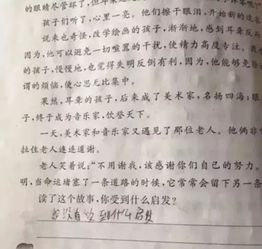 的眼睛尽管坏了,但耳朵
孩子们听了,心里一亮。他们擦干眼泪,开始新的
说来也奇怪,改学绘画的孩子,渐渐地,感到耳聋反
因为,他可以避免一切喧嚣的干扰,使精力高度专注。
的孩子,慢慢地,也觉得失明反倒有利,因为,他能够免除
谓的烦恼,使心思无比集中。
果然,耳聋的孩子,后来成了美术家,名扬四海;眼
子,终于成为音乐家,饮誉天下。
一天,美术家和音乐家又遇见了那位老人。他俩非
拉住老人连连道谢。
老人笑着说:“不用谢我,该感谢你们自己的努力。
明,当命运堵塞了一条道路的时候,它常常会留下另一条
读了这个故事,你受到什么启发?
我没有受到什么启发